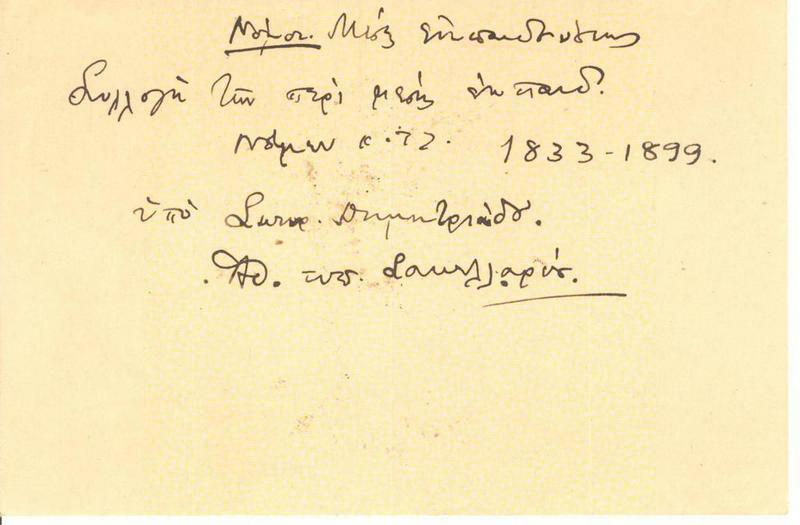 Νόμοι. Μέσης ἐκπαιδεύσεως
Συλλογὴ τῶν περὶ μέσης ἐκπαιδ.
νόμων κ.τ.λ. 1833-1899.
ὑπὸ Σωτηρ. Δημητριάδο.
Ἀθ. τυπ. Σακελλαρίο.